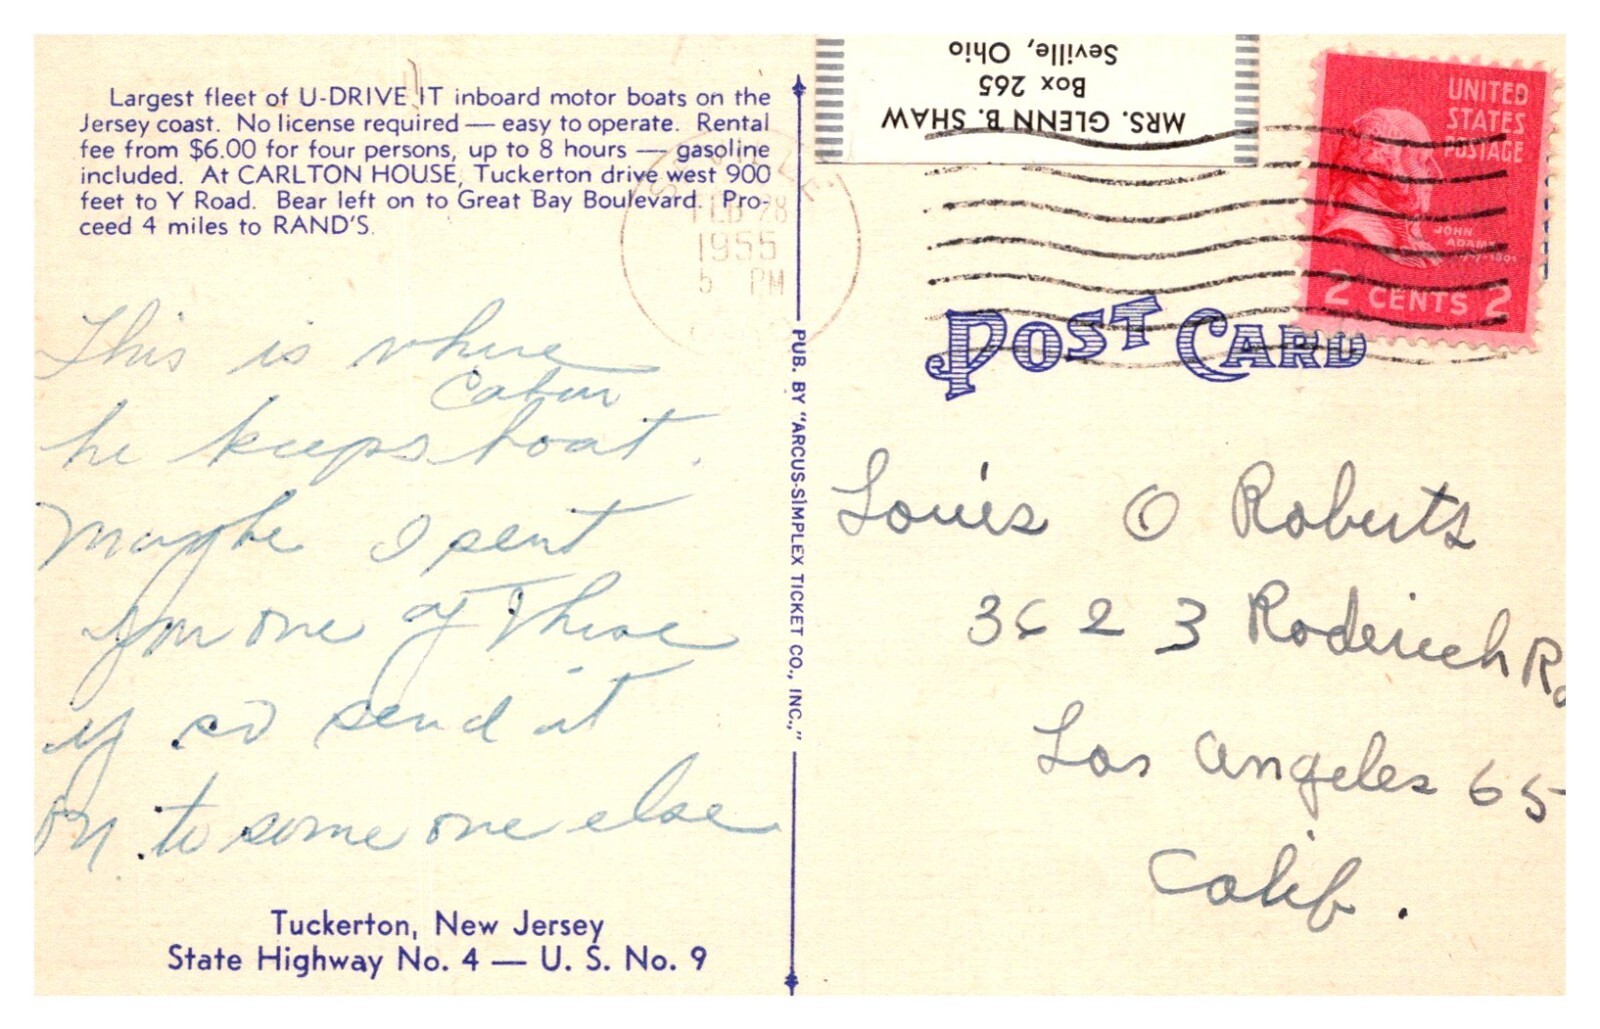 Largest fleet of U-DRIVE IT inboard motor boats on the
Jersey coast. No license required — easy to operate. Rental
fee from $6.00 for four persons, up to 8 hours — gasoline
included. At CARLTON HOUSE, Tuckerton drive west 900
feet to Y Road. Bear left on to Great Bay Boulevard. Pro-
ceed 4 miles to RAND'S.
This is where
cabin
he keeps boat.
Maybe I sent
you one of these
if so send it
on to some one else
Tuckerton, New Jersey
State Highway No. 4 — U. S. No. 9
PUB. BY "ARCUS-SIMPLEX TICKET CO., INC.,"
MRS. GLENN B. SHAW
Box 265
Seville, Ohio
SEVILLE
FEB 28
1955
5 PM
UNITED
STATES
POSTAGE
JOHN
ADAMS
2 CENTS 2
POST CARD
Louis O Roberts
3623 Roderick Rd
Los Angeles 65
Calif.